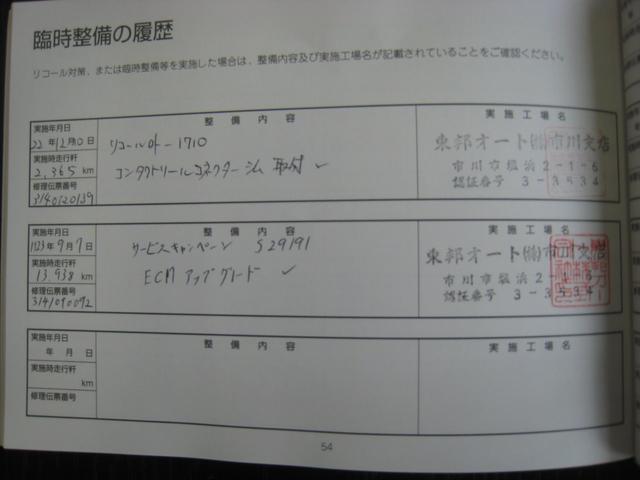 臨時整備の履歴
リコール対策、または臨時整備等を実施した場合は、整備内容及び実施工場名が記載されていることをご確認ください。
実施年月日
22年12月10日
実施時走行粁
2,365 km
修理伝票番号
3140120139
整備内容
リコール外-1710
コンタクトリールコネクターシム 取付 ✓
実施工場名
東邦オート㈱市川支店
市川市塩浜2-1-6
認証番号 3-3534
実施年月日
23年9月7日
実施時走行粁
13,938 km
修理伝票番号
3141090092
整備内容
サービスキャンペーン S29191
ECM アップグレード ✓
実施工場名
東邦オート㈱市川支店
市川市塩浜2-1-6
認証番号 3-3534
実施年月日
年 月 日
実施時走行粁
km
修理伝票番号
整備内容
実施工場名
54